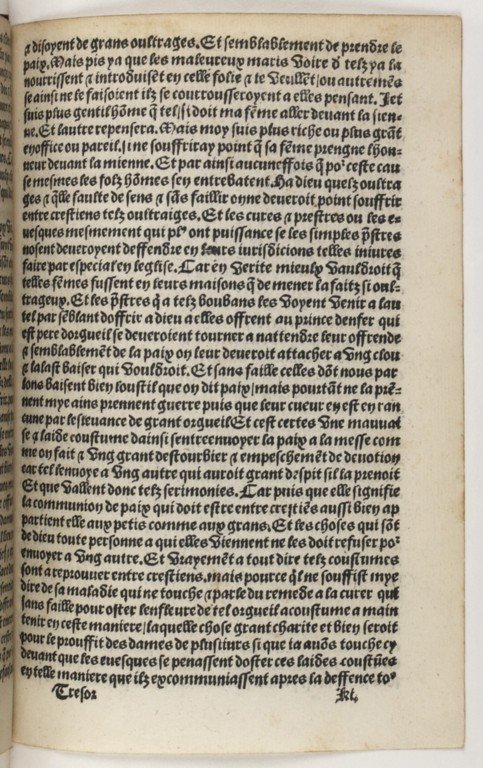 ⁊ disoyent de grans oultrages. Et semblablement de prendre le
paix. Mais pis ya que les maleureux maris Voire d̕ telz ya la
nourrissent ⁊ introduisēt en celle folie ⁊ le Veullēt/ou autremēs
se ainsi ne le faisoient ilz se courtrousseroyent a elles pensant. Iet
suis plus gentil hōme q̄ tel/si doit ma fēme aller devant la sien-
ne. Et lautre repensera. Mais moy suis plus riche ou plus grāt
en office ou pareil/ ine souffriray point q̄ sa fēme prengne lhon-
neur devant la mienne. Et par ainsi aucuneffois q̄ po᷒ ceste cau
se mesmes les folz hōmes sen entrebatent. Ha dieu quelz oultra
ges ⁊ q̄lle faulte de sens ⁊ sās faillir on ne deveroit point souffrir
entre crestiens telz oultraiges. Et les cures ⁊ prestres ou les e-
vesques mesmement qui pl᷒ ont puissance se les simples p̄stres
nosent deveroyent deffendre en leurs iurisdicions telles iniures
faire par especial en leglise. Car en Verite mieulx Vauldroit q̄
telles fēmes fussent en leurs maisons q̄ de mener la faitz si oul-
trageux. Et les p̄stres q̄ a telz boubans les Voyent Venir a lau
tel par sēblant doffrir a dieu a elles offrent au prince denfer qui
est pere dorgueil se deveroient tourner a nattendre leur offrende
⁊ semblablemēt de la paix on leur deveroit attacher a Vng clou
⁊ la laist baiser qui Vouldroit. Et sans faille celles dōt nous par
lons baisent bien loustil que on dit paix/mais pourtāt ne la prē-
nent mye ains prennent guerre puis que leur cueur en est en ran
cune par lestrivance de grant orgueil Et cest certes Vne mauuai
se ⁊ laide coustume dainsi sentreenuoyer la paix a la messe com
me on fait ⁊ Vng grant destourbier ⁊ empeschemēt de devotion
car tel lenuoye a Vng autre qui auroit grant despit sil la prenoit
Et que Vallent donc telz serimonies. Car puis que elle signifie
la communion de paix qui doit estre entre crestiēs aussi bien ap
partient elle aux petis comme aux grans. Et les choses qui sōt
de dieu toute personne a qui elles Viennent ne les doit refuser po᷒
enuoyer a Vng autre. Et Vrayemēt a tout dire telz coustumes
sont a reprouver entre crestiens. mais pource q̄l ne souffist mye
dire de sa maladie qui ne touche ⁊ parle du remede a la curer qui
sans faille pour oster lenfleure de tel orgueil acoustume a main
tenir en ceste maniere/laquelle chose grant charite et bien seroit
pour le prouffit des dames de plusiurs si que ia auōs touche cy
devant que les evesques se penassent doster ces laides coustūes
en telle maniere que ilz excommuniassent apres la deffence to᷒
Tresor ki.